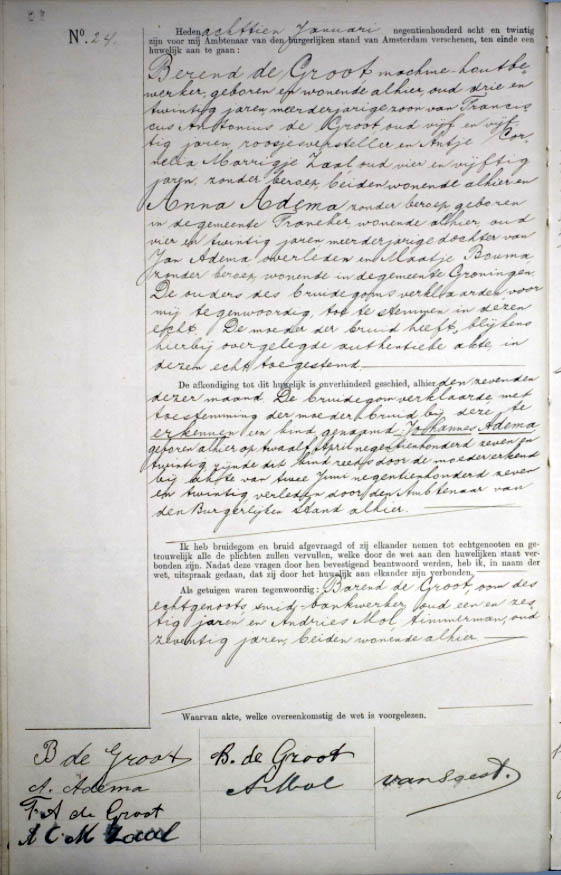 No. 24.
Heden achttien Januari negentienhonderd acht en twintig
zijn voor mij Ambtenaar van den burgerlijken stand van Amsterdam verschenen, ten einde een
huwelijk aan te gaan:
Berend de Groot, machine-houtbe-
werker, geboren en wonende alhier, oud drie en
twintig jaren, meerderjarige zoon van Francis-
cus Antonius de Groot oud vijf en vijf-
tig jaren, roosjesversteller en Antje Cor-
nelia Marrigje Zaal oud vier en vijftig
jaren, zonder beroep, beiden wonende alhier en
Anna Adema zonder beroep, geboren
in de gemeente Franeker wonende alhier, oud
vier en twintig jaren meerderjarige dochter van
Jan Adema overleden en Maatje Bouma
zonder beroep, wonende in de gemeente Groningen.
De ouders des bruidegoms verklaarden voor
mij tegenwoordig, toe te stemmen in dezen
echt. De moeder der bruid heeft, blijkens
hierbij overgelegde authentieke akte, in
dezen echt toegestemd.
De afkondiging tot dit huwelijk is onverhinderd geschied, alhier den zevenden
dezer maand. De bruidegom verklaarde, met
toestemming der moeder/bruid bij deze te
erkennen een kind genaamd: Johannes Adema
geboren alhier op twaalf April negentienhonderd zeven en
twintig zijnde dit kind reeds door de moeder erkend
bij akte van twee Juni negentienhonderd zeven
en twintig verleden door den Ambtenaar van
den Burgerlijken Stand alhier.
Ik heb bruidegom en bruid afgevraagd of zij elkander nemen tot echtgenooten en ge-
trouwelijk alle de plichten zullen vervullen, welke door de wet aan den huwelijken staat ver-
bonden zijn. Nadat deze vragen door hen bevestigend beantwoord werden, heb ik, in naam der
wet, uitspraak gedaan, dat zij door het huwelijk aan elkander zijn verbonden.
Als getuigen waren tegenwoordig: Barend de Groot, oom des
echtgenoots, smid-bankwerker, oud een en zes-
tig jaren en Andries Mol timmerman, oud
zeventig jaren, beiden wonende alhier.
Waarvan akte, welke overeenkomstig de wet is voorgelezen.
B de Groot
A. Adema
F. A de Groot
A C M Zaal
B. de Groot
A Mol